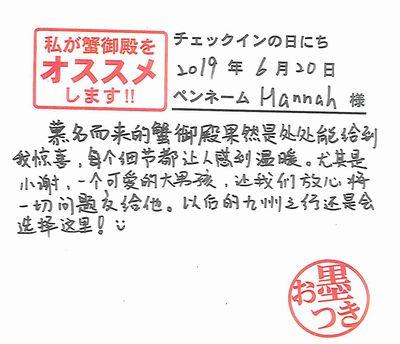 私が蟹御殿を
オススメ
します!!
チェックインの日にち
2019 年 6 月 20 日
ペンネーム Hannah 様
慕名而来的蟹御殿果然是处处能给到
我惊喜，每个细节都让人感到温暖。尤其是
小谢，一个可爱的大男孩，让我们放心将
一切问题友给他。以后的九州之行还是会
选择这里！
お墨つき